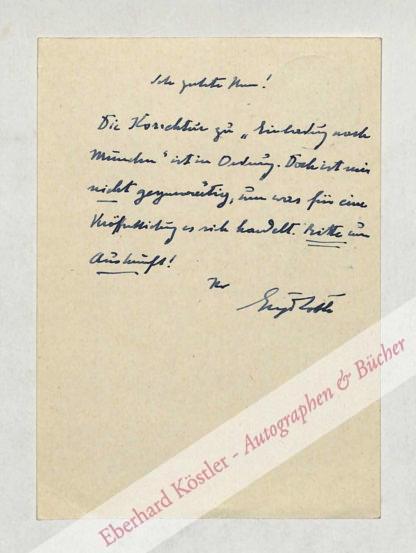 Sehr geehrte Herren!
Die Korrektur zu „Einladung nach
München" ist in Ordnung. Doch ist mir
nicht gegenwärtig, um was für eine
Veröffentlichung es sich handelt. Bitte um
Auskunft!
Ihr
Eberhard Köstler - Autographen & Bücher